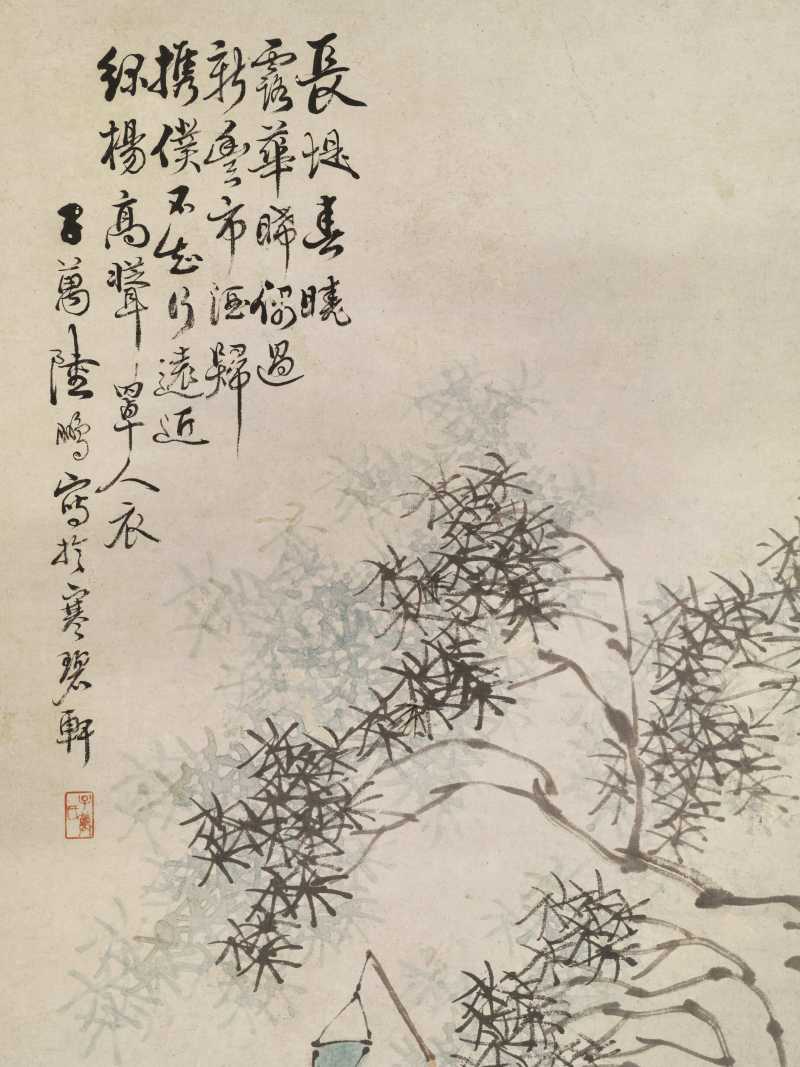 長堤春曉
露華晞偶過
新豐市酒歸
携僕不知行遠近
綠楊高聳罩人衣
子萬陸鵬寫於寒碧軒